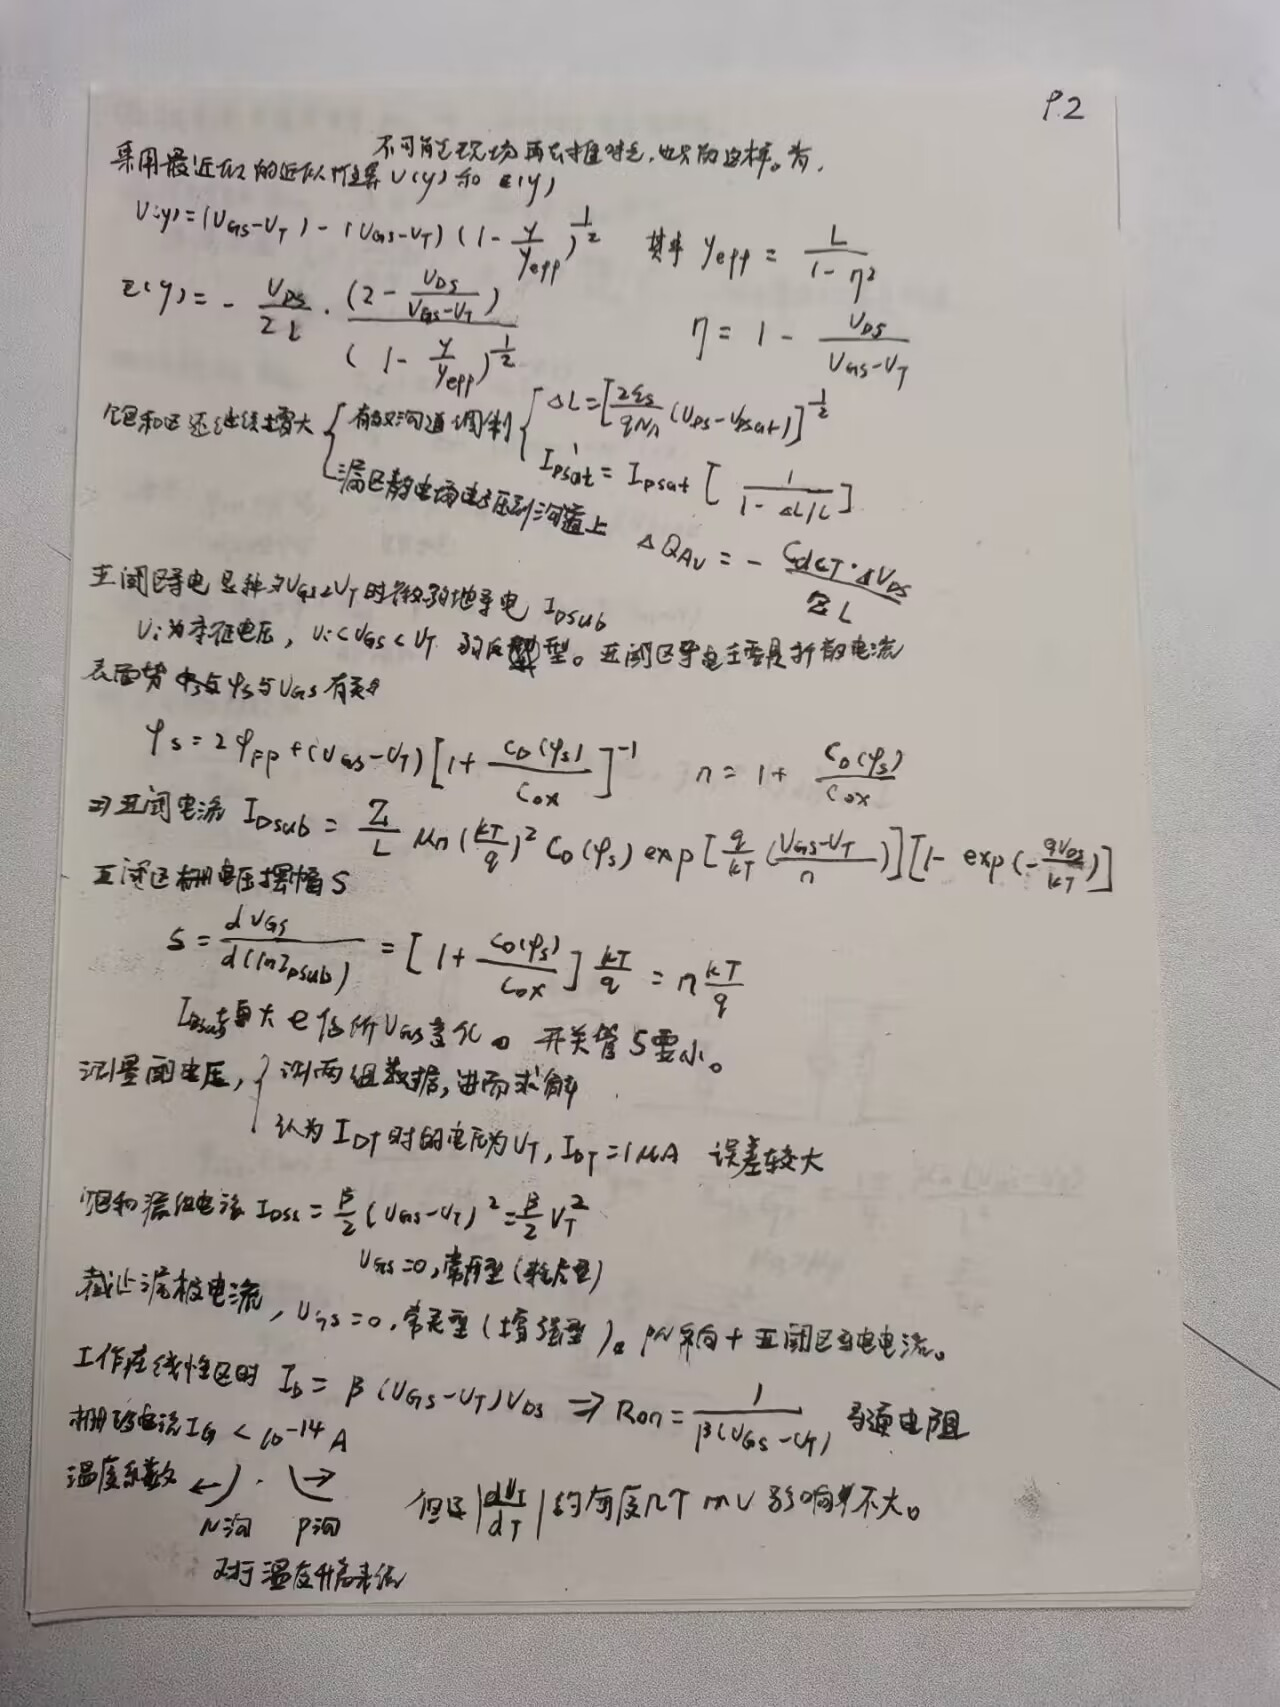 P.2
不可能现场再去推导它,也只能这样。背,
采用最近似的近似计算 V(y) 和 E(y)
V(y)=(V_GS-V_T)-(V_GS-V_T)(1-y/y_eff)^{1/2} 其中 y_eff = L/(1-η²)
E(y)=-V_DS/2L · (2-V_DS/(V_GS-V_T))/(1-y/y_eff)^{1/2} η=1-V_DS/(V_GS-V_T)
饱和区还继续增大 { 有效沟道调制 { ΔL=[2ε_s/qN_A (V_DS-V_Dsat)]^{1/2}
I'_Dsat=I_Dsat[1/(1-ΔL/L)]
漏区静电场电压到沟道上 ΔQ_AV=-C_dCT·ΔV_DS/ZL
亚阈区导电是种为V_GS≤V_T时微弱地导电 I_Dsub
V_i为本征电压, V_i<V_GS<V_T 弱反型。亚阈区导电主要是扩散电流
表面势 φ_s与V_GS有关
φ_s=2φ_FP+(V_GS-V_T)[1+C_D(φ_s)/C_ox]^{-1} n=1+C_D(φ_s)/C_ox
⇒亚阈电流 I_Dsub=Z/L μ_n(kT/q)² C_D(φ_s) exp[q/kT((V_GS-V_T)/n)][1-exp(-qV_DS/kT)]
亚阈区栅电压摆幅S
S=dV_GS/d(lnI_Dsub)=[1+C_D(φ_s)/C_ox]kT/q=n kT/q
I_Dsub增大e倍所V_GS变化。开关管S要小。
测量阈电压, { 测两组数据,进而求解
认为I_DT时的电压为V_T, I_DT=1μA 误差较大
饱和漏极电流 I_DSS=β/2(V_GS-V_T)²=β/2 V_T²
V_GS=0,常开型(耗尽型)
截止漏极电流, V_GS=0,常关型(增强型)。PN反向+亚阈区导电电流。
工作在线性区时 I_D=β(V_GS-V_T)V_DS ⇒ R_on=1/β(V_GS-V_T) 导通电阻
栅极电流I_G<10^{-14}A
温度系数
N沟 P沟 但是|dV_T/dT|约每度几个mV影响不大。
对于温度升高来说